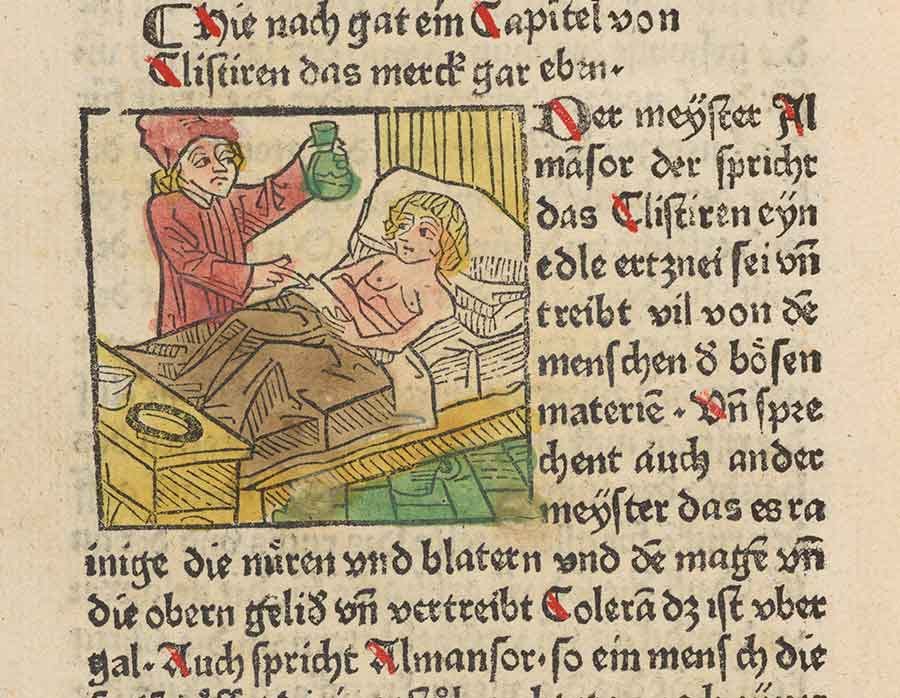 Hie nach gat ein Capitel von
Clistiren das merck gar eben.
Der meÿster Al
māsor der spricht
das Clistiren eyn
edle ertznei sei vñ
treibt vil von dē
menschen đ bôsen
materiē . Vñ spre
chent auch ander
meÿster das es ra
inige die nůren vnd blatern vnd dē magē vñ
die obern geliđ vñ vertreibt Colerā dz ist vber
gal. Auch spricht Almansor. so ein mensch die